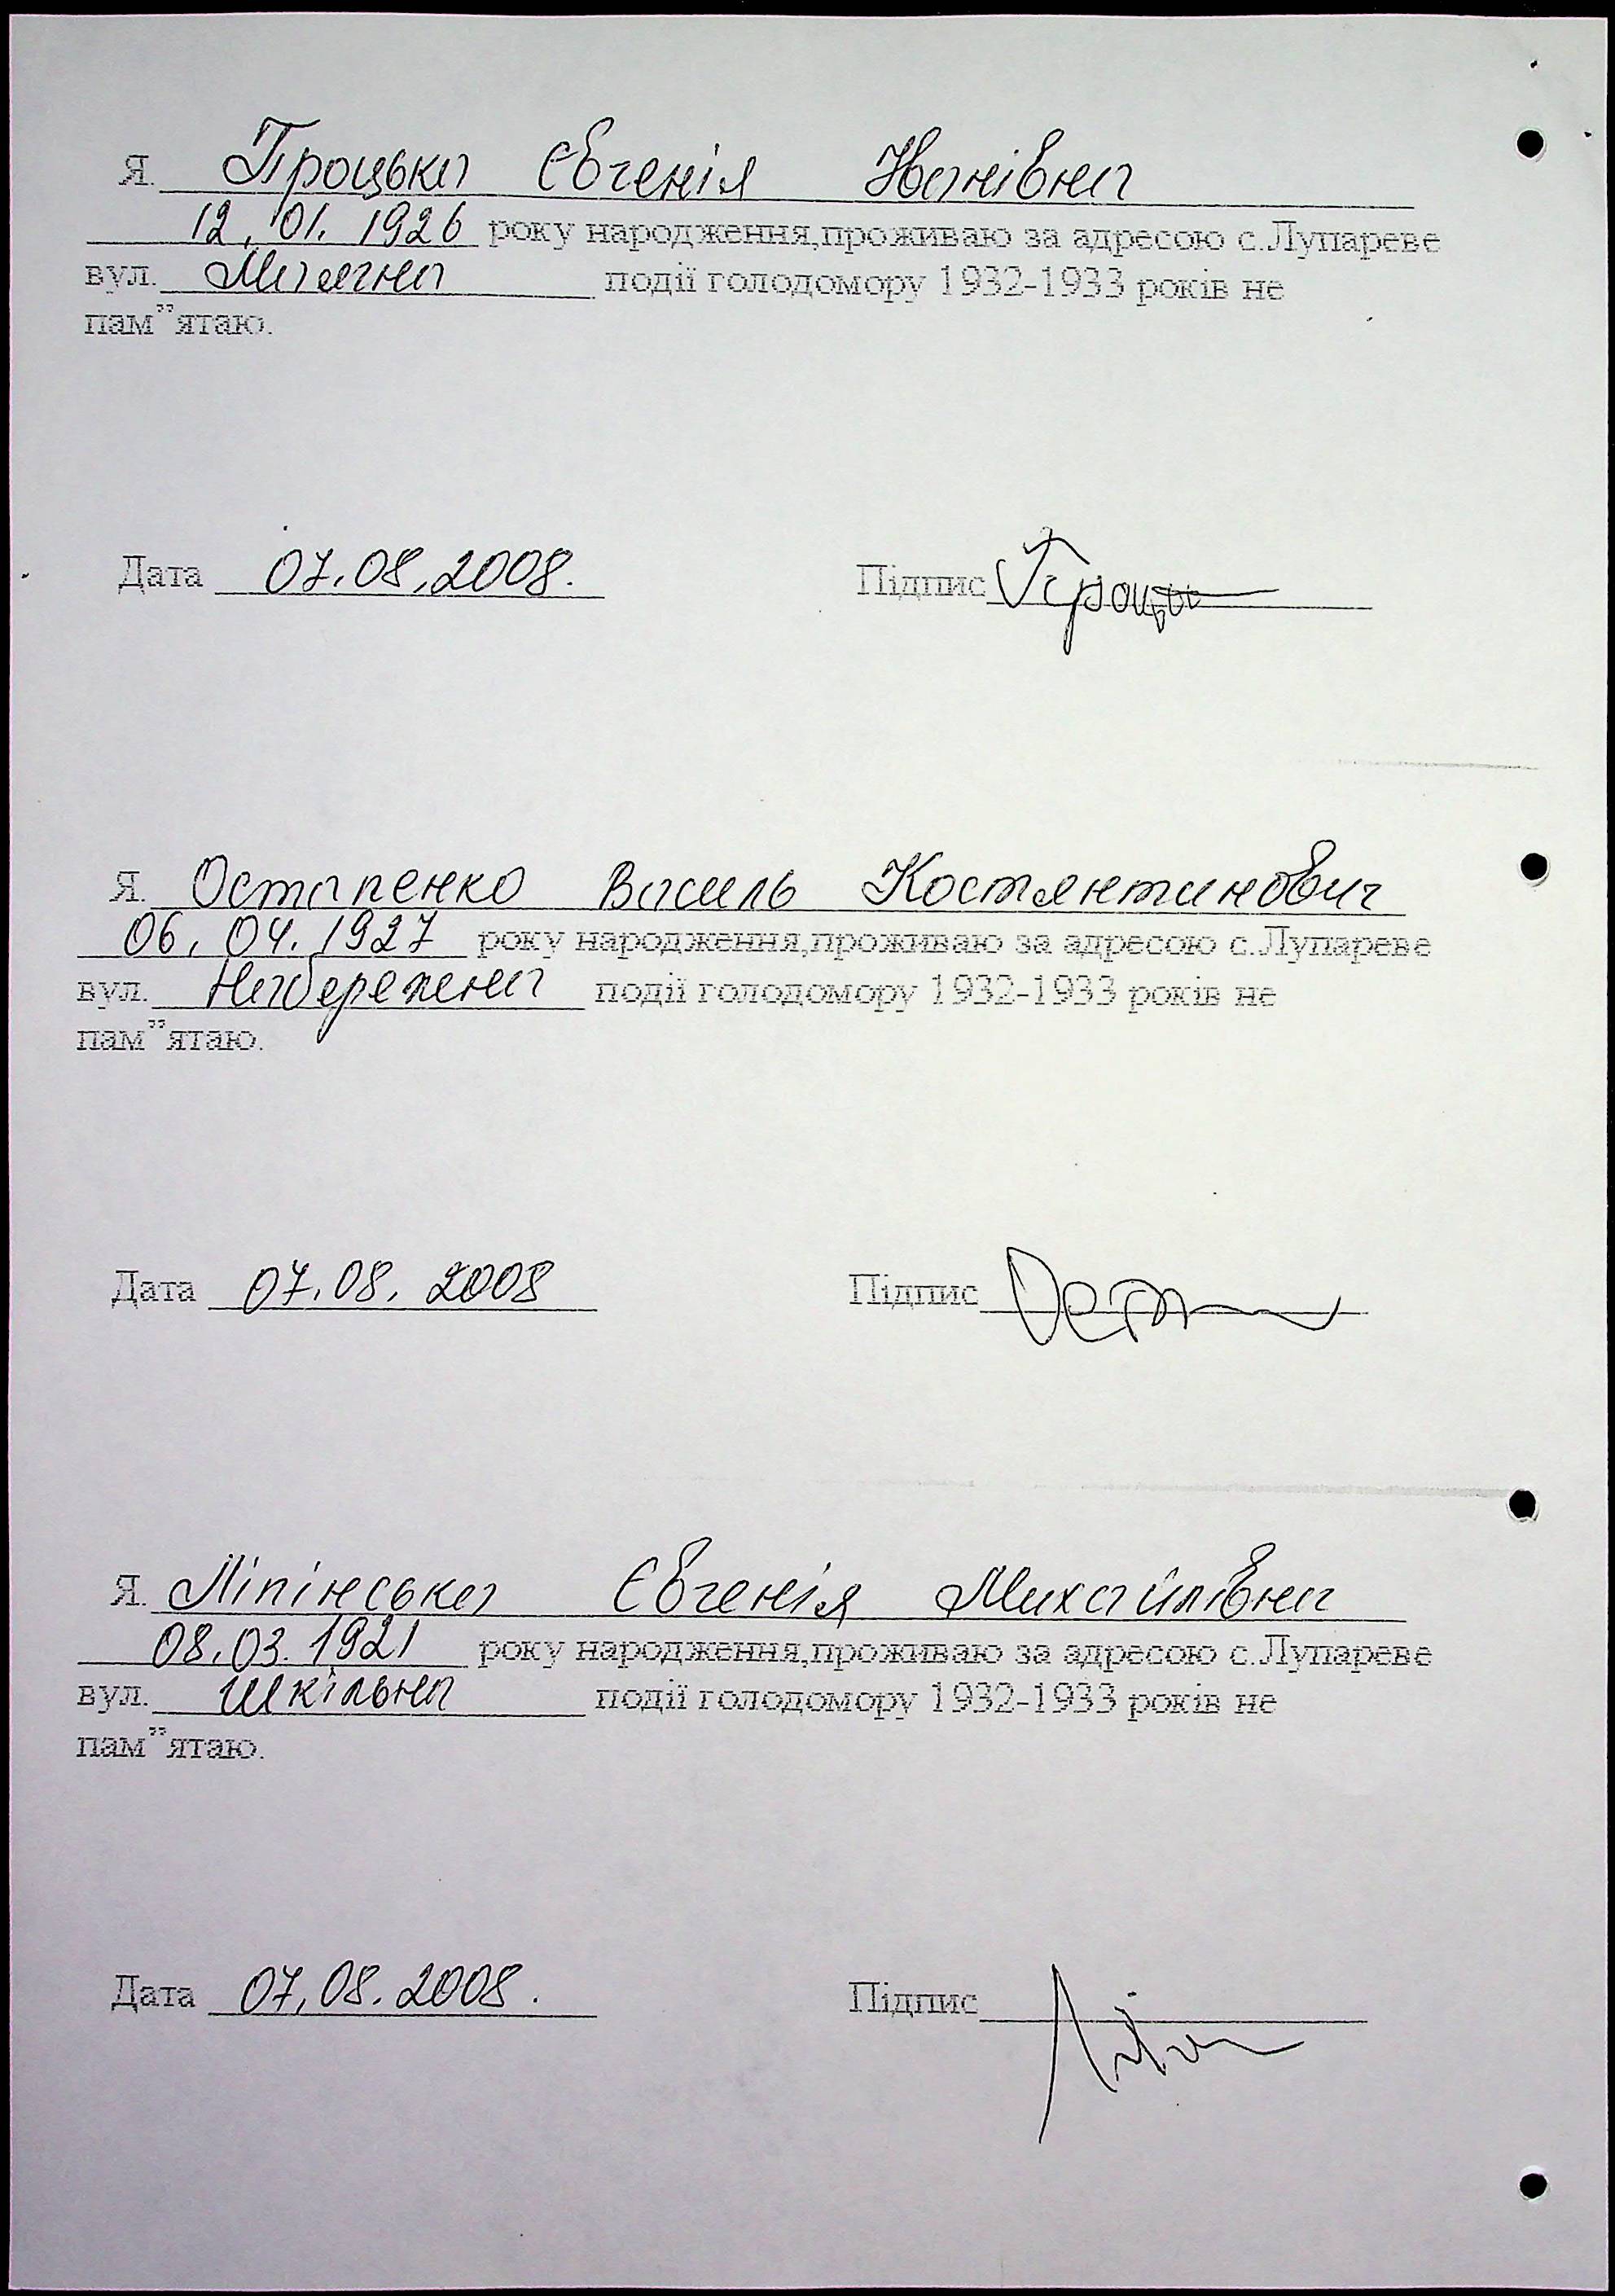 Я. Процька Євгенія Іванівна
12.01.1926 року народження,проживаю за адресою с.Лупареве
вул. Маячна події голодомору 1932-1933 років не
пам”ятаю.
Дата 07.08.2008. Підпис
Я. Остапенко Василь Костянтинович
06.04.1927 року народження,проживаю за адресою с.Лупареве
вул. Набережна події голодомору 1932-1933 років не
пам”ятаю.
Дата 07.08.2008 Підпис
Я. Ліпінська Євгенія Михайлівна
08.03.1921 року народження,проживаю за адресою с.Лупареве
вул. Шкільна події голодомору 1932-1933 років не
пам”ятаю.
Дата 07.08.2008. Підпис